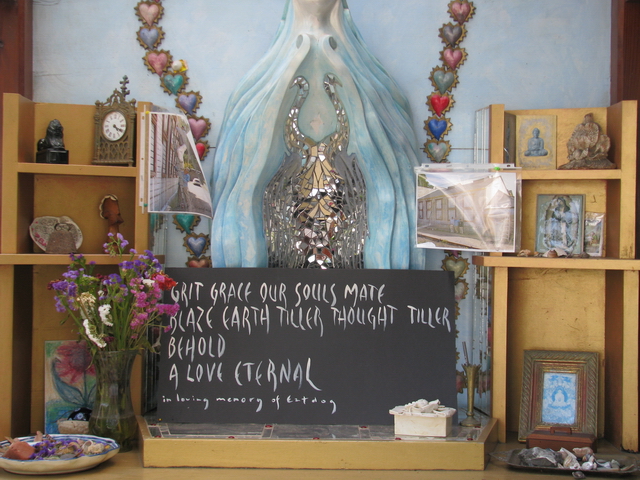 GRIT GRACE OUR SOULS MATE
BLAZE EARTH TILLER THOUGHT TILLER
BEHOLD
A LOVE ETERNAL
in loving memory of Eztdog